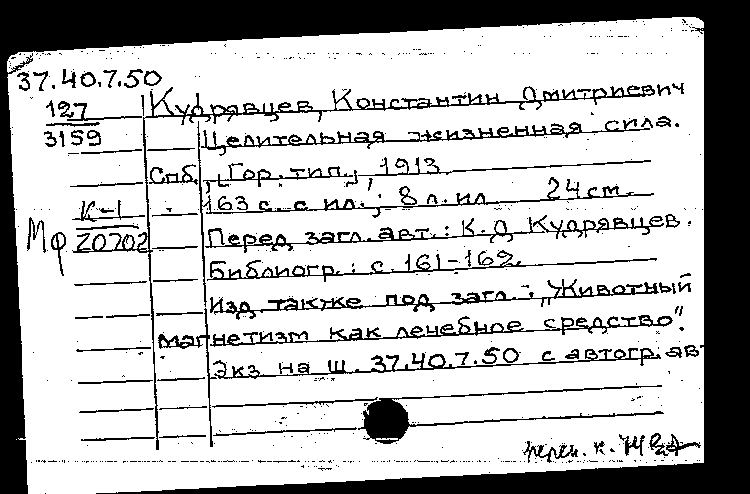 37.40.7.50
127 Кудрявцев, Константин Дмитриевич
3159 Целительная жизненная сила.
Спб., [Гор. тип.], 1913.
К-1 163 с. с ил.; 8 л. ил 24 cm.
МФ Z0702 Перед загл. авт.: К.Д. Кудрявцев.
Библиогр.: с. 161-162.
Изд. также под загл.: „Животный
магнетизм как лечебное средство".
Экз на ш. 37.40.7.50 с автогр. авт